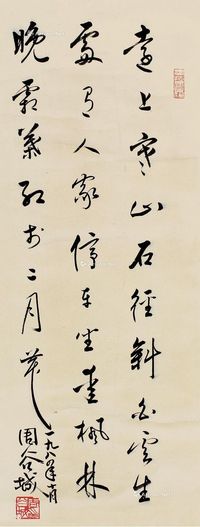 遠上寒山石徑斜白雲生
處有人家停車坐愛楓林
晚霜葉紅於二月花
周谷城